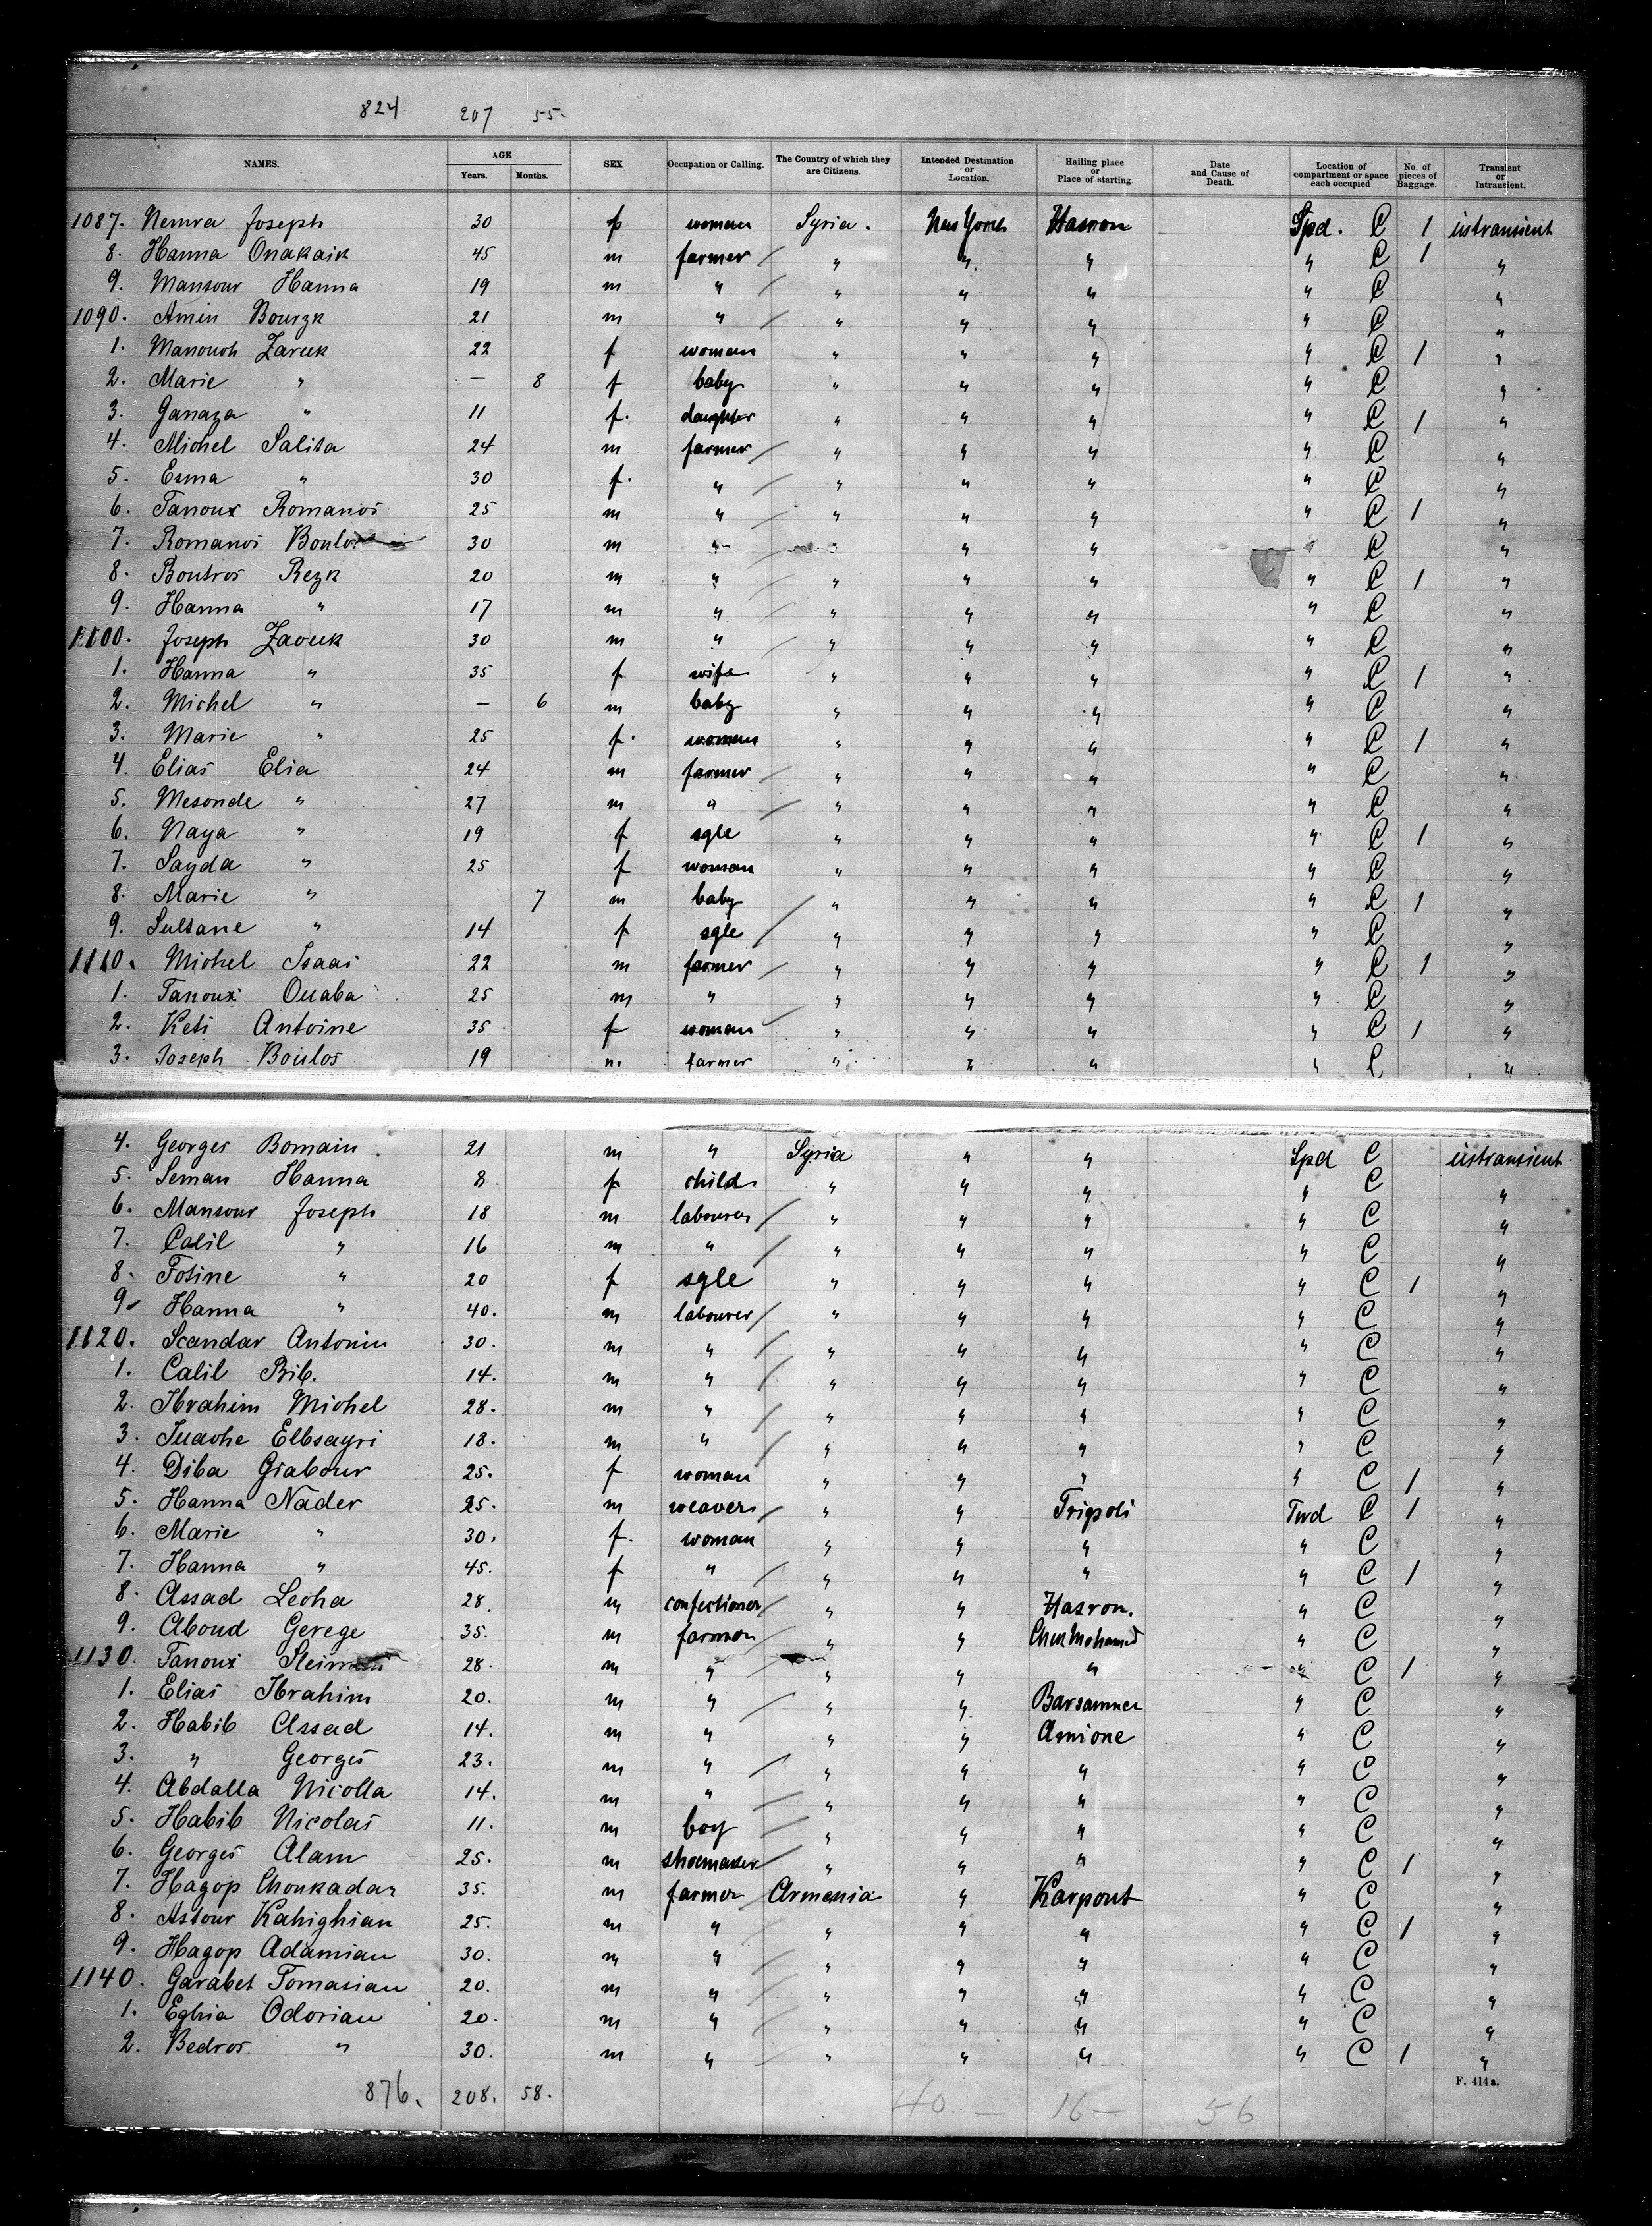 824 207 55.
NAMES. AGE Years. Months. SEX Occupation or Calling. The Country of which they are Citizens. Intended Destination or Location. Hailing place or Place of starting. Date and Cause of Death. Location of compartment or space each occupied No. of pieces of Baggage. Transient or Intransient.
1087. Nemra Joseph 30 f woman Syria. New York Hasron Spd. C 1 intransient
8. Hanna Onakaik 45 m farmer / " " " " C 1 "
9. Mansour Hanna 19 m " / " " " " C "
1090. Amin Bourzk 21 m " / " " " " C "
1. Manouoh Zaruk 22 f woman " " " " C 1 "
2. Marie " — 8 f baby " " " " C "
3. Ganaza " 11 f. daughter " " " " C 1 "
4. Michel Salisa 24 m farmer / " " " " C "
5. Esma " 30 f. " / " " " " C "
6. Tanous Romanos 25 m " / " " " " C 1 "
7. Romanos Boulos 30 m " " " " C "
8. Boutros Rezk 20 m " / " " " " C 1 "
9. Hanna " 17 m " / " " " " C "
1100. Joseph Zaouk 30 m " / " " " " C "
1. Hanna " 35 f wife " " " " C 1 "
2. Michel " — 6 m baby " " " " C "
3. Marie " 25 f. woman " " " " C 1 "
4. Elias Elia 24 m farmer / " " " " C "
5. Mesonde " 27 m " / " " " " C "
6. Naya " 19 f sgle " " " " C 1 "
7. Sayda " 25 f woman " " " " C "
8. Marie " 7 m baby " " " " C 1 "
9. Sultane " 14 f sgle / " " " " C "
1110. Michel Isaai 22 m farmer / " " " " C 1 "
1. Tanous Ouaba 25 m " / " " " " C "
2. Keti Antoine 35 f woman " " " " C 1 "
3. Joseph Boulos 19 m farmer " " " " C "
4. Georges Bomain. 21 m " Syria " " Spd C intransient
5. Seman Hanna 8 f child " " " " C "
6. Mansour Joseph 18 m labourer / " " " " C "
7. Calil " 16 m " / " " " " C "
8. Fotine " 20 f sgle " " " " C 1 "
9. Hanna " 40. m labourer / " " " " C "
1120. Scandar Antonin 30. m " / " " " " C "
1. Calil Bib. 14. m " / " " " " C "
2. Ibrahim Michel 28. m " / " " " " C "
3. Elbsayri 18. m " / " " " " C "
4. Diba Giabour 25. f woman " " " " C 1 "
5. Hanna Nader 25. m weaver / " " Tripoli Twd C 1 "
6. Marie " 30. f. woman " " " " C "
7. Hanna " 45. f " / " " " " C 1 "
8. Assad Leoha 28. m confectioner / " " Hasron. " C "
9. Aboud Gerege 35. m farmer / " " " C "
1130. Tanous 28. m " / " " C 1 "
1. Elias Ibrahim 20. m " / " " Barsamnea " C "
2. Habib Assad 14. m " " " Amione " C "
3. " Georges 23. m " / " " " " C "
4. Abdalla Nicolla 14. m " / " " " " C "
5. Habib Nicolas 11. m boy / " " " " C "
6. Georges Alam 25. m shoemaker / " " " " C 1 "
7. Hagop Choukadar 35. m farmer Armenia " Karpout " C "
8. Astour Kahighian 25. m " / " " " " C 1 "
9. Hagop Adamian 30. m " / " " " " C "
1140. Garabet Tomasian 20. m " / " " " " C "
1. Eghia Odorian 20. m " / " " " " C "
2. Bedros " 30. m " / " " " " C 1 "
F. 414a.
876. 208. 58. 40 — 16 — 56